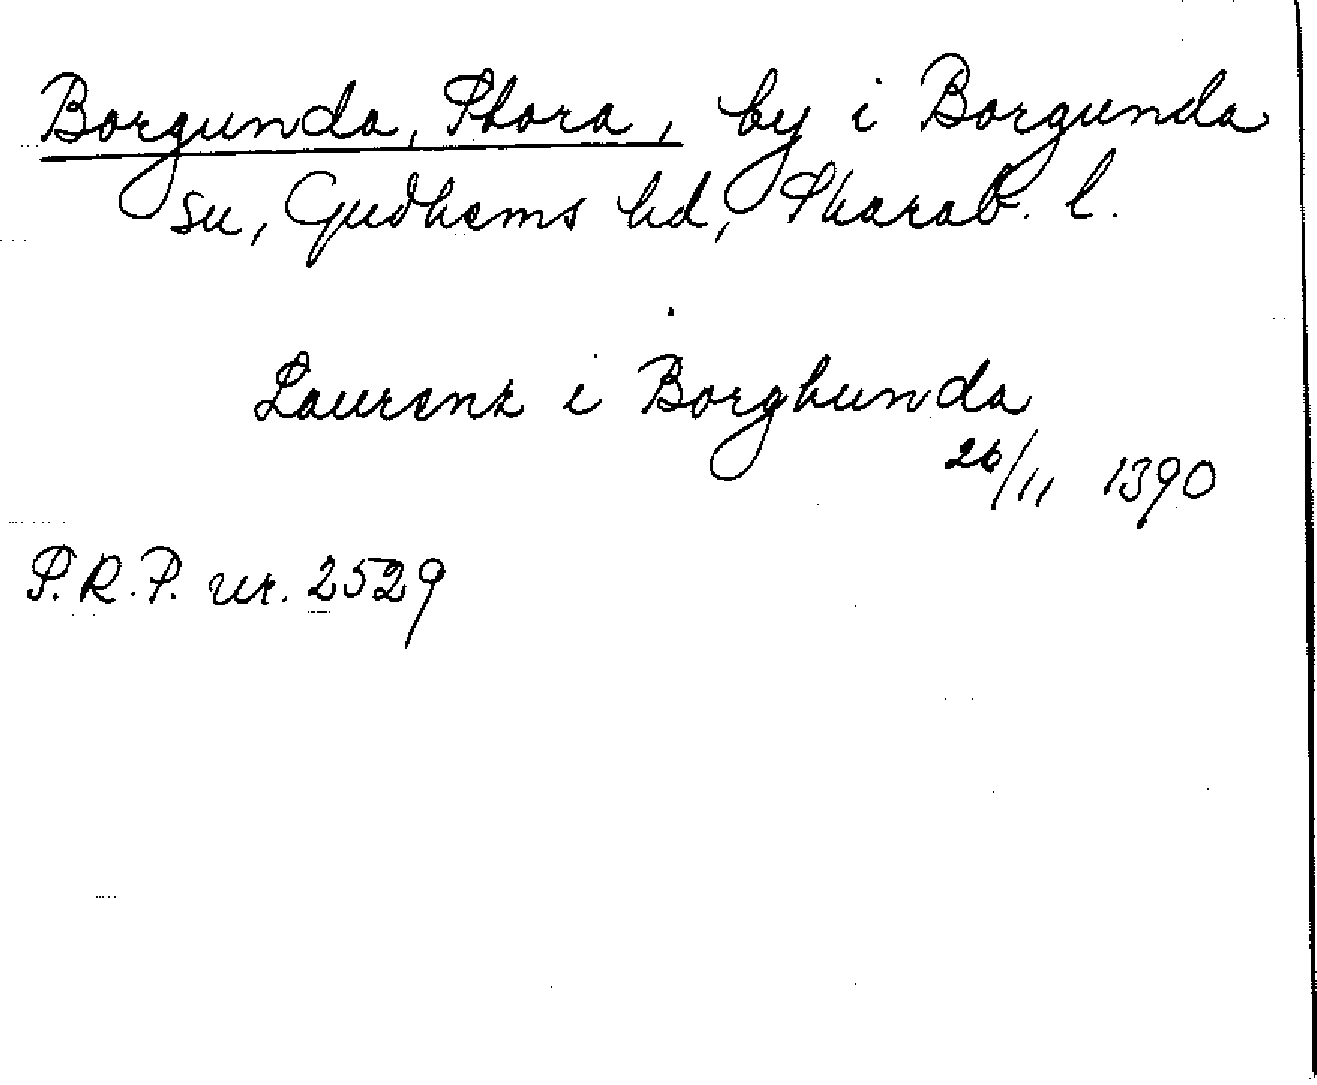 Borgunda, Stora, by i Borgunda
sn, Gudhems hd, Skarab. l.
Laurenz i Borghunda
26/11 1390
S.R.P. nr. 2529